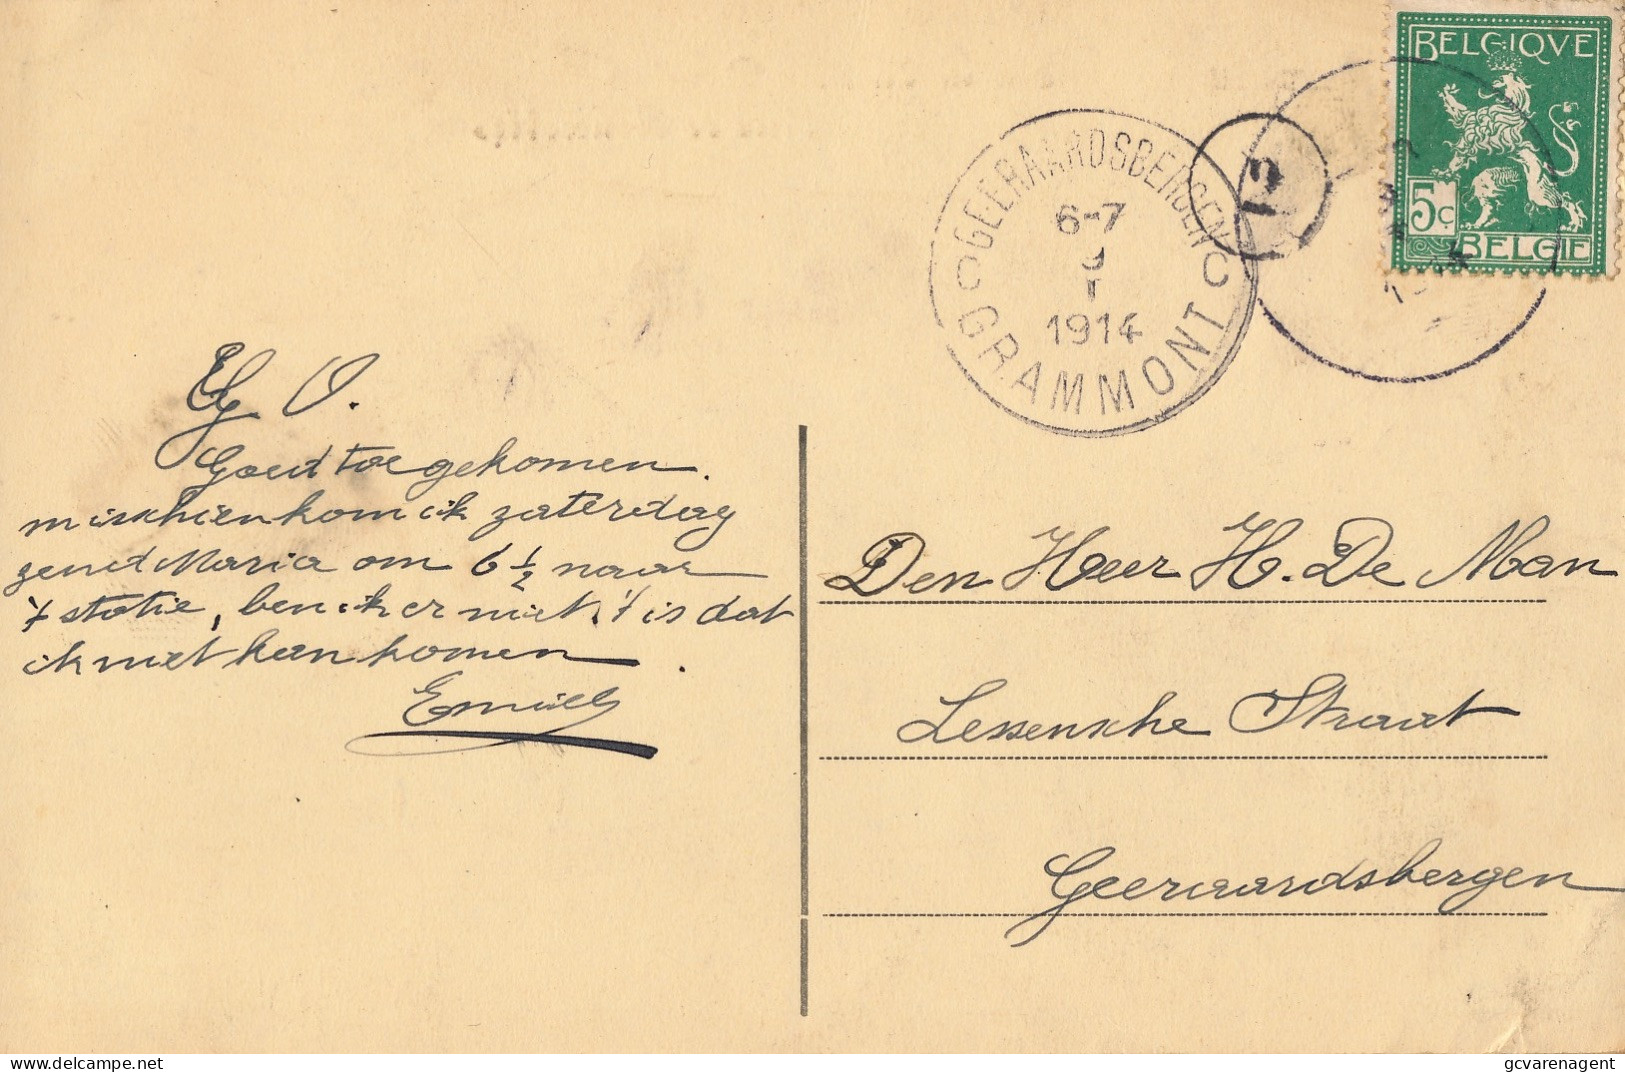 BELGIQUE
5c
BELGIE
GEERAARDSBERGEN
6-7
9
I
1914
GRAMMONT
12
G. O.
Goed toegekomen.
misschien kom ik zaterdag
zend Maria om 6 ½ naar
't statie, ben ik er niet 't is dat
ik niet kan komen.
Emiel
Den Heer H. De Man
Lessensche Straat
Geeraardsbergen
delcampe.net
gcvarenagent